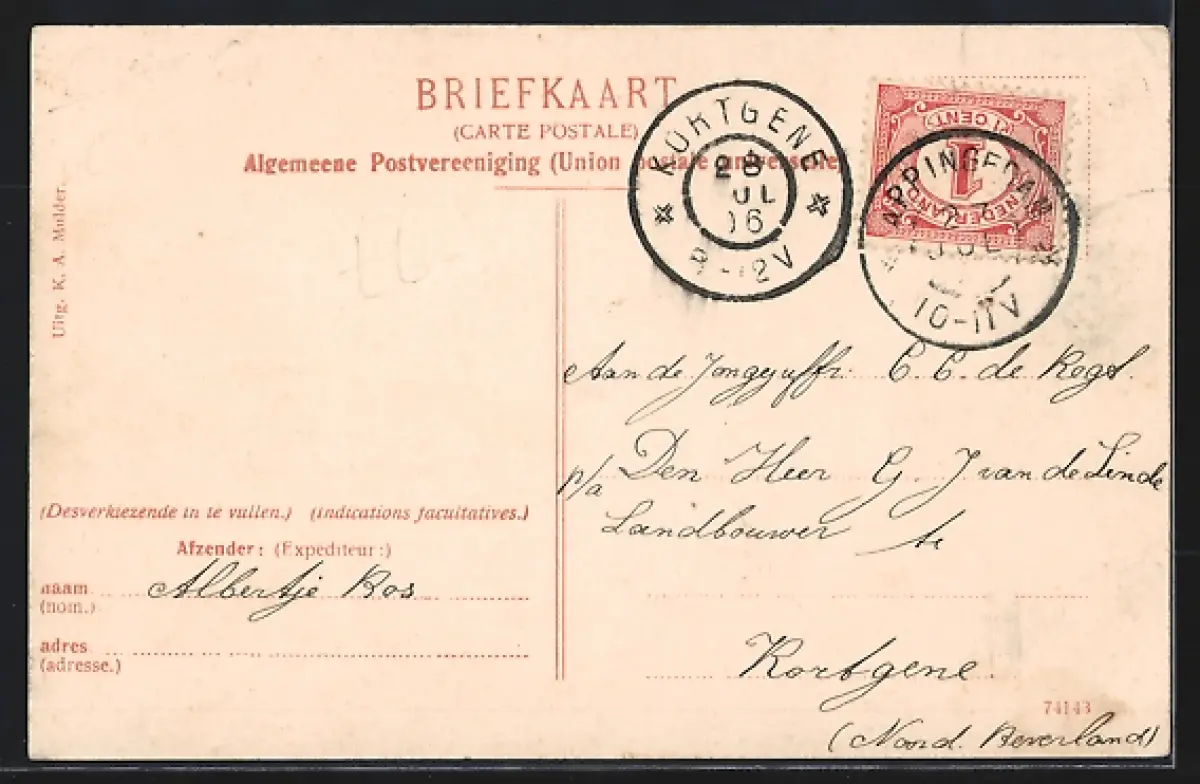 BRIEFKAART
(CARTE POSTALE)
Algemeene Postvereeniging (Union postale universelle)
Uitg. K. A. Mulder.
KORTGENE
28
JUL
06
8-12V
(1 CENT)
1
NEDERLAND
APPINGEDAM
27
JUL
10-11V
Aan de Jongejuffr. C. C. de Regt.
p/a Den Heer G. J. van de Linde
Landbouwer te
Kortgene.
(Noord. Beverland)
(Desverkiezende in te vullen.) (indications facultatives.)
Afzender: (Expéditeur:)
naam Albertje Ros
(nom.)
adres
(adresse.)
74143